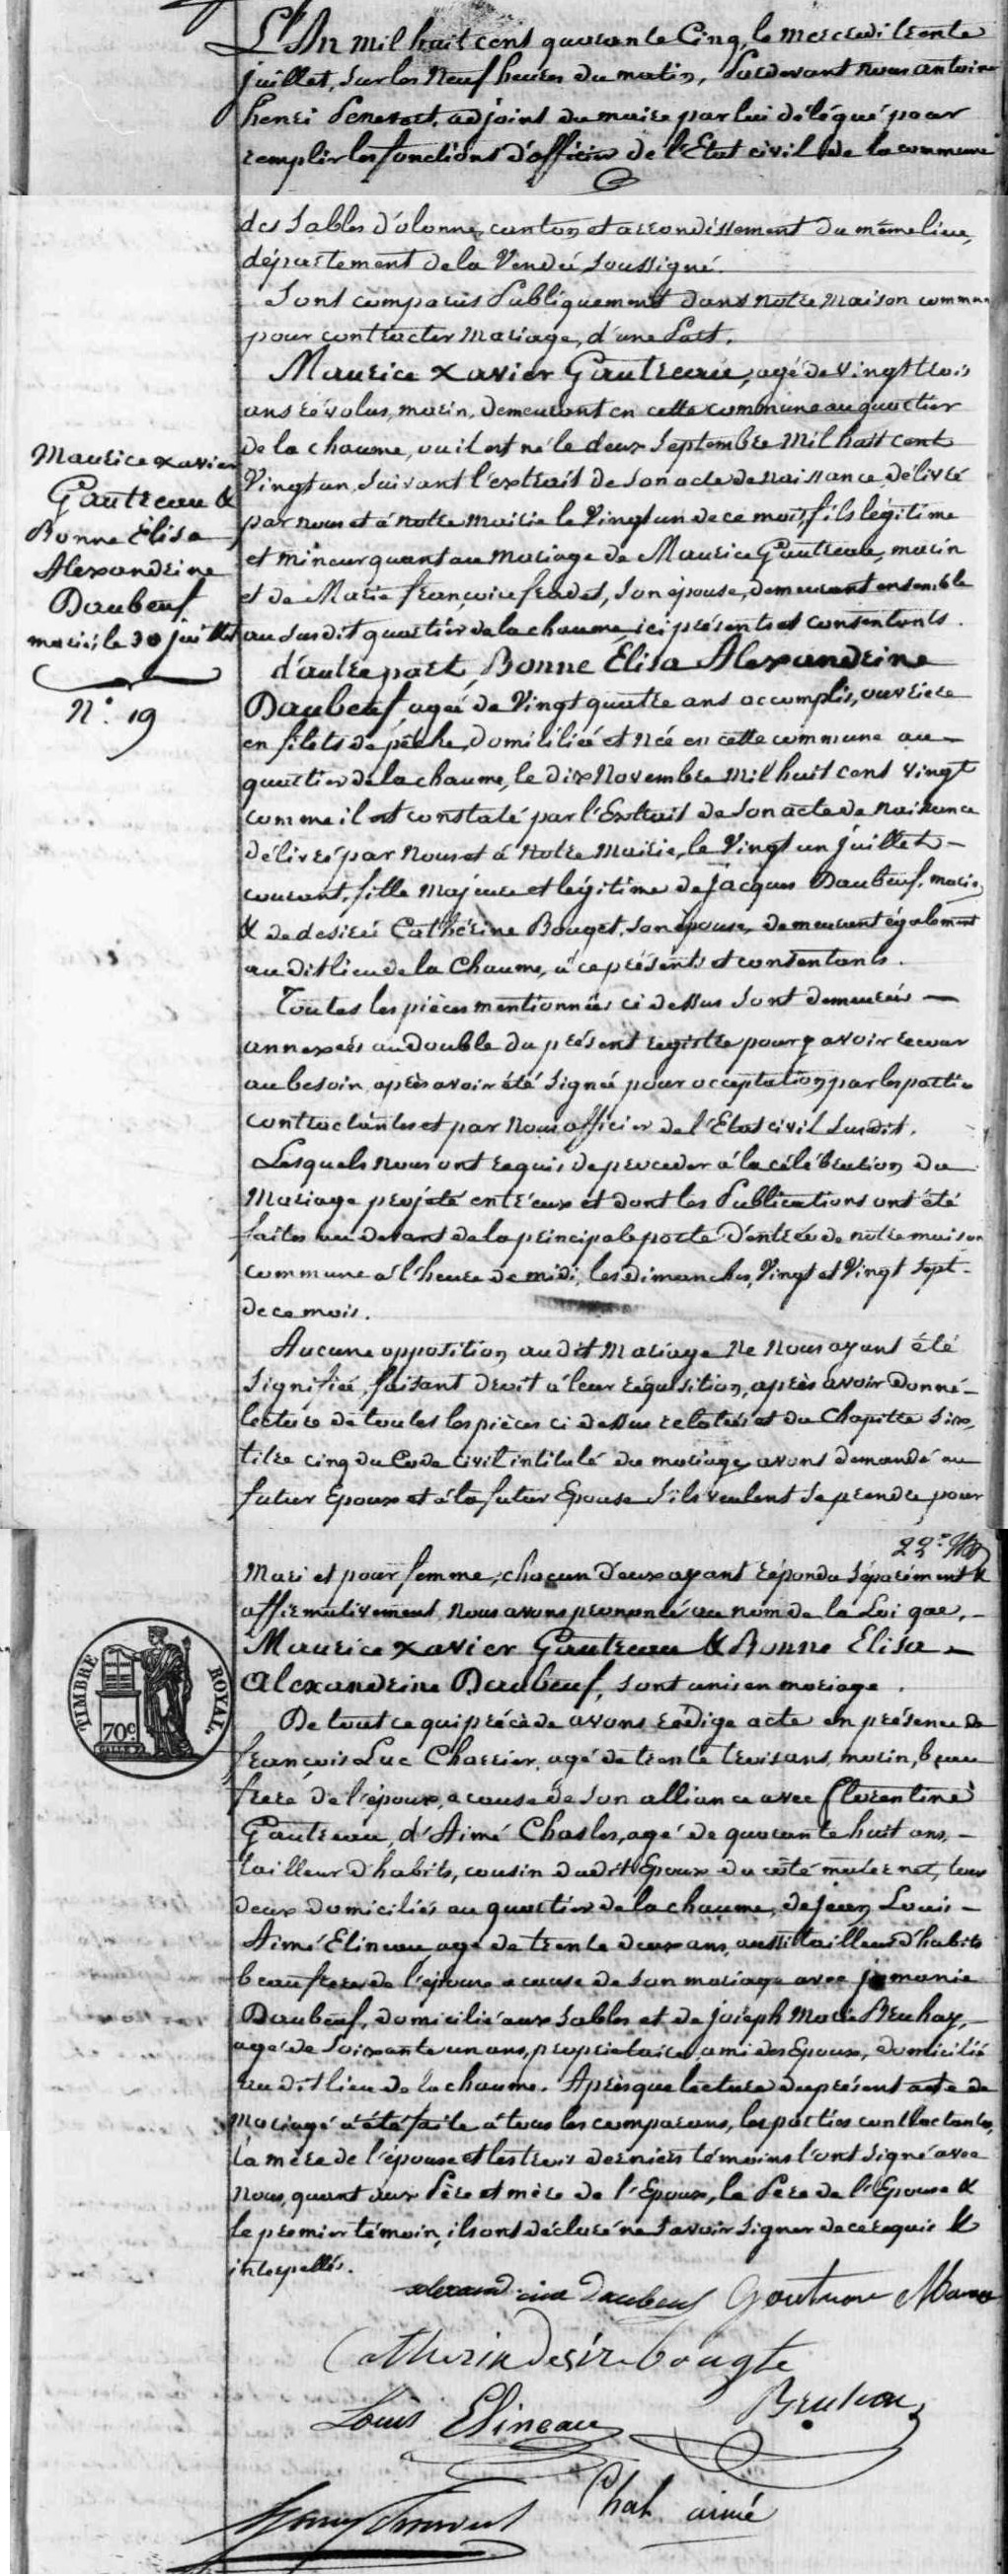 L'An mil huit cent quarante Cinq, le mercredi trente
juillet, sur les Neuf heures du matin, Pardevant nous antoine
henri adjoint du maire par lui délégué pour
remplir les fonctions d'officier de l'Etat civil de la commune
des Sables d'olonne, canton et arrondissement du même lieu,
département de la Vendée, soussigné.
Sont comparus Publiquement dans notre maison commune
pour contracter mariage, d'une Part,
Maurice xavier Gautreau, agé de vingt trois
ans révolus, marin, demeurant en cette commune au quartier
de la chaume, ou il est né le deux Septembre mil huit cent
Vingt un, suivant l'extrait de son acte de naissance, délivré
par nous et à notre mairie le Vingt un de ce mois, fils légitime
et mineur quant au mariage de Maurice Gautreau, marin
et de Marie françoise fradet, son épouse, demeurant ensemble
au susdit quartier de la chaume, ici présents et consentants.
d'autre part, Bonne Élisa Alexandrine
Daubeuf, agée de Vingt quatre ans accomplis, ouvriere
en filets de pêche, domiciliée et née en cette commune au
quartier de la chaume, le dix Novembre mil huit cent vingt
comme il est constaté par l'Extrait de son acte de naissance
délivré par nous et à notre mairie, le Vingt un juillet
courant, fille majeure et légitime de jacques Daubeuf, marin,
& de desirée Cathérine Bouget, son épouse, demeurant également
au dit lieu de la Chaume, à ce présents et consentants.
Toutes les pièces mentionnées ci dessus sont demeurées
annexées au double du présent registre pour y avoir recour
au besoin, après avoir été signée pour acceptation par les parties
contractantes et par Nous officier de l'Etat civil susdit.
Lesquels nous ont requis de proceder à la célébration du
Mariage projeté entr'eux et dont les Publications ont été
faites au devant de la principale porte d'entrée de notre maison
commune à l'heure de midi, les dimanches, Vingt et Vingt sept
de ce mois.
Aucune opposition au dit mariage ne nous ayant été
signifiée, faisant droit à leur réquisition, après avoir donné
lecture de toutes les pièces ci dessus relatées et du Chapitre six,
titre cinq du Code Civil intitulé du mariage, avons demandé au
futur Epoux et à la futur Epouse s'ils veulent se prendre pour
Maurice xavier
Gautreau &
Bonne Élisa
Alexandrine
Daubeuf
mariés le 30 juillet
N° 19
22e
mari et pour femme, chacun d'eux ayant répondu séparément &
affirmativement, nous avons prononcé au nom de la Loi que,
Maurice xavier Gautreau & Bonne Elisa
Alexandrine Daubeuf, sont unis en mariage.
TIMBRE ROYAL
70c
De tout ce qui précède avons rédigé acte en présence de
françois Luc Charrier, agé de trente trois ans, marin, beau
frere de l'époux, a cause de son alliance avec florentine
Gautreau, d'Aimé Chasles, agé de quarante huit ans,
tailleur d'habits, cousin dudit Epoux du coté maternel, tous
deux domiciliés au quartier de la chaume, de jean Louis
Aimé Elineau, agé de trente deux ans, aussi tailleur d'habits
beau frere de l'épouse a cause de son mariage avec
Daubeuf, domicilié aux Sables et de joséph Marie
agé de soixante un ans, propriétaire, ami des Epoux, domicilié
au dit lieu de la chaume. Après que lecture du présent acte de
mariage a été faite à tous les comparans, les parties contractantes,
la mère de l'épouse et les trois derniers témoins l'ont signé avec
nous, quant aux Père et mère de l'Epoux, le Père de l'Epouse &
le premier témoin, ils ont déclaré ne savoir signer de ce requis &
interpellés.
daubeuf Gautreau
Catherin desire bougte
Louis Elineau
Chal aimé